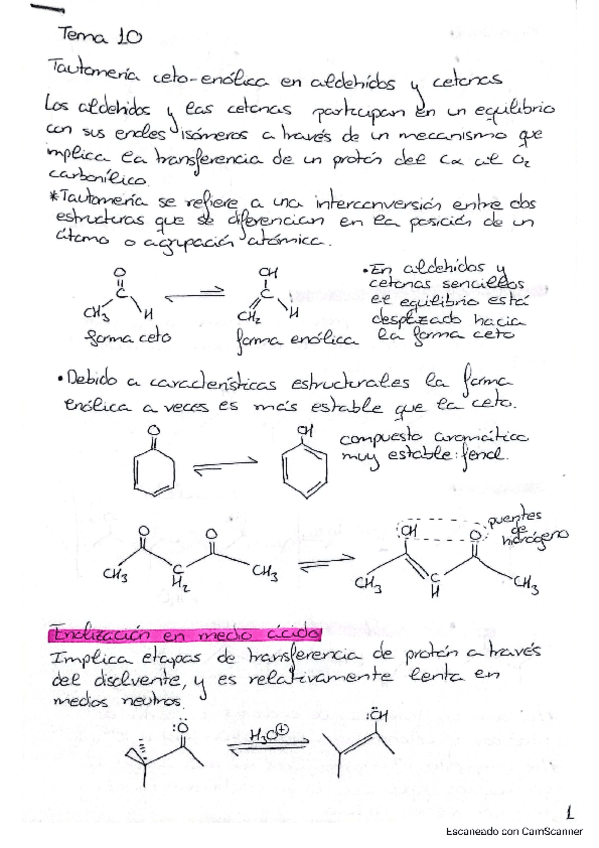 Tema 10
Tautomería ceto-enólica en aldehídos y cetonas
Los aldehidos y las cetonas participan en un equilibrio
con sus enoles isómeros a través de un mecanismo que
implica la transferencia de un protón del Cα al O₂
carbonílico.
*Tautomería se refiere a una interconversión entre dos
estructuras que se diferencian en la posición de un
átomo o agrupación atómica.
O
C
CH₃ H
forma ceto
OH
C
CH₂ H
forma enólica
•En aldehidos y
cetonas sencillos
el equilibrio está
desplazado hacia
la forma ceto
•Debido a características estructurales la forma
enólica a veces es más estable que la ceto.
O
OH
compuesto aromático
muy estable: fenol.
O O
CH₃ C CH₃
H₂
OH O
CH₃ C CH₃
H
puentes
de
hidrógeno
Enolización en medio ácido
Implica etapas de transferencia de protón a través
del disolvente, y es relativamente lenta en
medios neutros.
:Ö
H₃O⊕
:ÖH
1
Escaneado con CamScanner